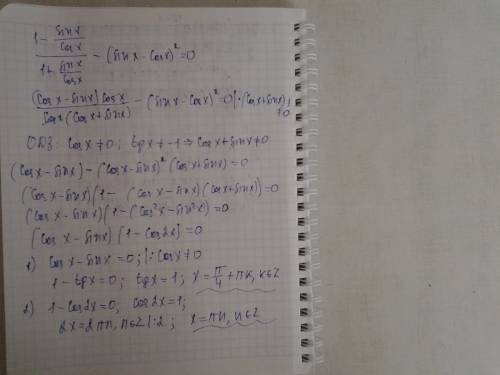 (1 - sin x / cos x) / (1 + sin x / cos x) - (sin x - cos x)² = 0
(cos x - sin x) cos x / cos x (cos x + sin x) - (sin x - cos x)² = 0 | · (cos x + sin x) ≠ 0
ОДЗ: cos x ≠ 0; tg x ≠ -1 ⇒ cos x + sin x ≠ 0
(cos x - sin x) - (cos x - sin x)² (cos x + sin x) = 0
(cos x - sin x)(1 - (cos x - sin x)(cos x + sin x)) = 0
(cos x - sin x)(1 - (cos² x - sin² x)) = 0
(cos x - sin x)(1 - cos 2x) = 0
1) cos x - sin x = 0; | : cos x ≠ 0
1 - tg x = 0; tg x = 1; x = π/4 + πk, k∈Z
2) 1 - cos 2x = 0; cos 2x = 1;
2x = 2πn, n∈Z | : 2; x = πn, n∈Z